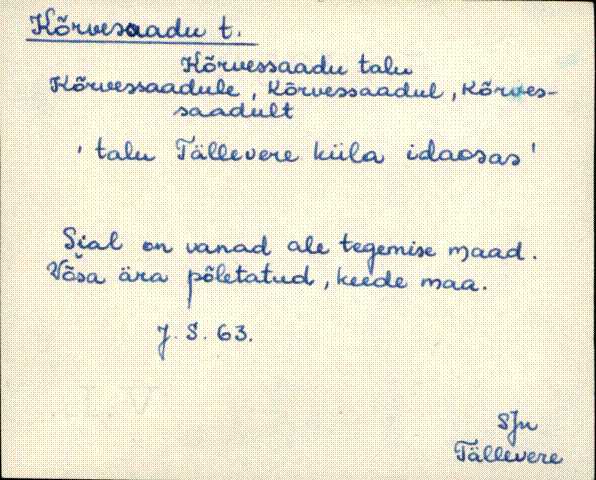 Kõrvesaadu t.
Kõrvessaadu talu
Kõrvessaadule, Kõrvessaadul, Kõrves-
saadult
' talu Tällevere küla idaosas '
Sial on vanad ale tegemise maad.
Võsa ära põletatud, keede maa.
J. S. 63.
SJn
Tällevere